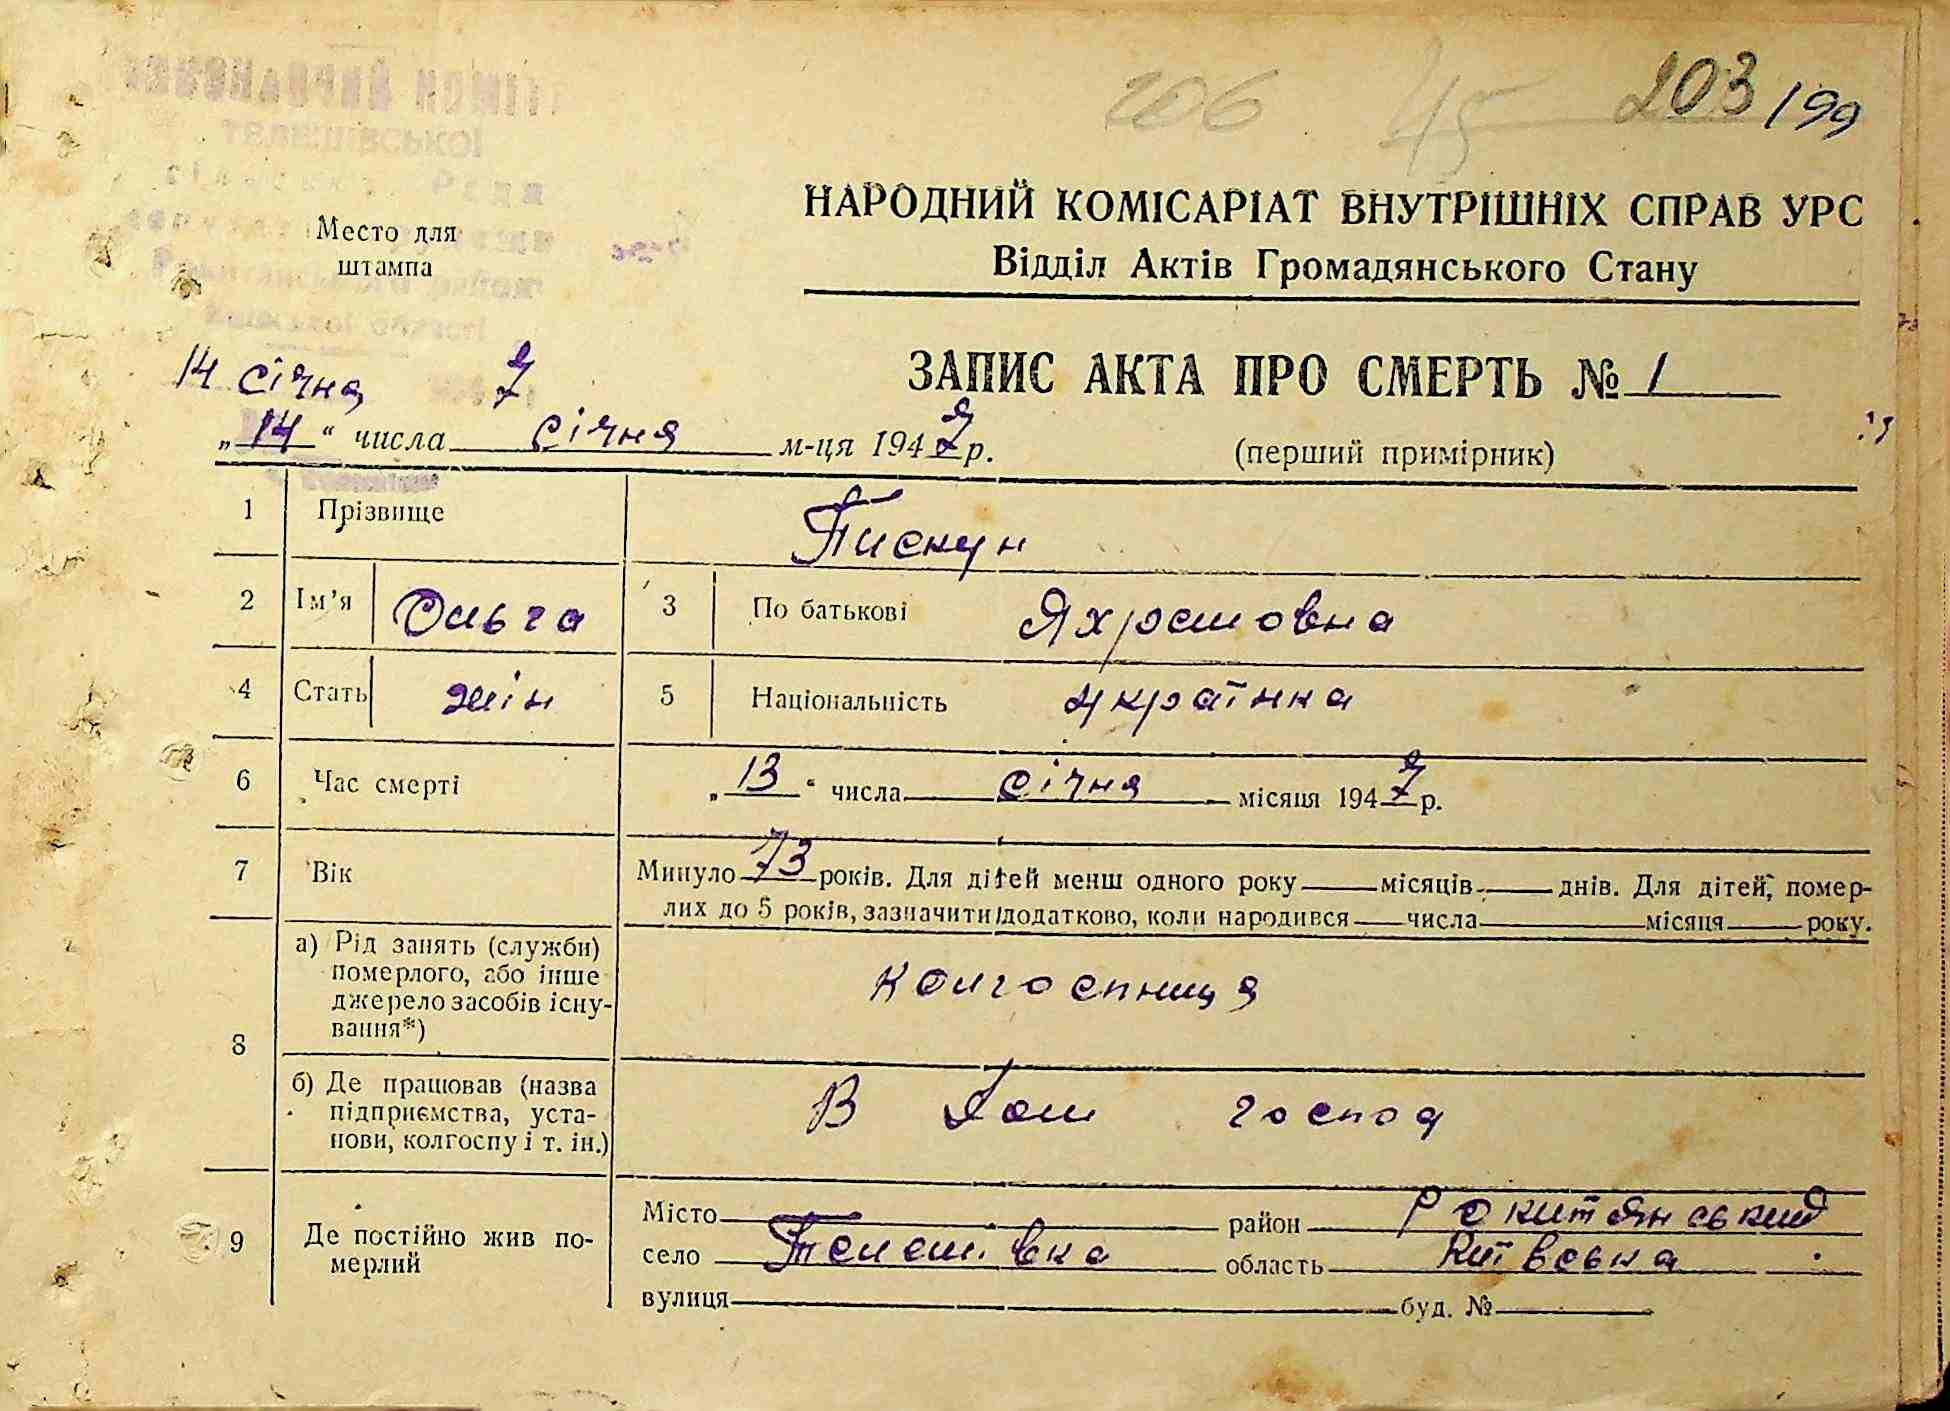 206 45 203/199
ТЕЛЕШІВСЬКОЇ
Место для
штампа
НАРОДНИЙ КОМІСАРІАТ ВНУТРІШНІХ СПРАВ УРС
Відділ Актів Громадянського Стану
14 січня 7
ЗАПИС АКТА ПРО СМЕРТЬ № 1
„14“ числа січня м-ця 1947 р.
(перший примірник)
1 Прізвище Пискун
2 Ім’я Ольга 3 По батькові Яхремовна
4 Стать жін 5 Національність українка
6 Час смерті „13“ числа січня місяця 1947 р.
7 Вік Минуло 73 років. Для дітей менш одного року місяців днів. Для дітей, помер-
лих до 5 років, зазначити додатково, коли народився числа місяця року.
8 а) Рід занять (служби)
померлого, або інше
джерело засобів існу-
вання*)
колгоспниця
б) Де працював (назва
підприємства, уста-
нови, колгоспу і т. ін.)
В дом господ
9 Де постійно жив по-
мерлий
Місто район Рокитянський
село Телешівка область Київська
вулиця буд. №